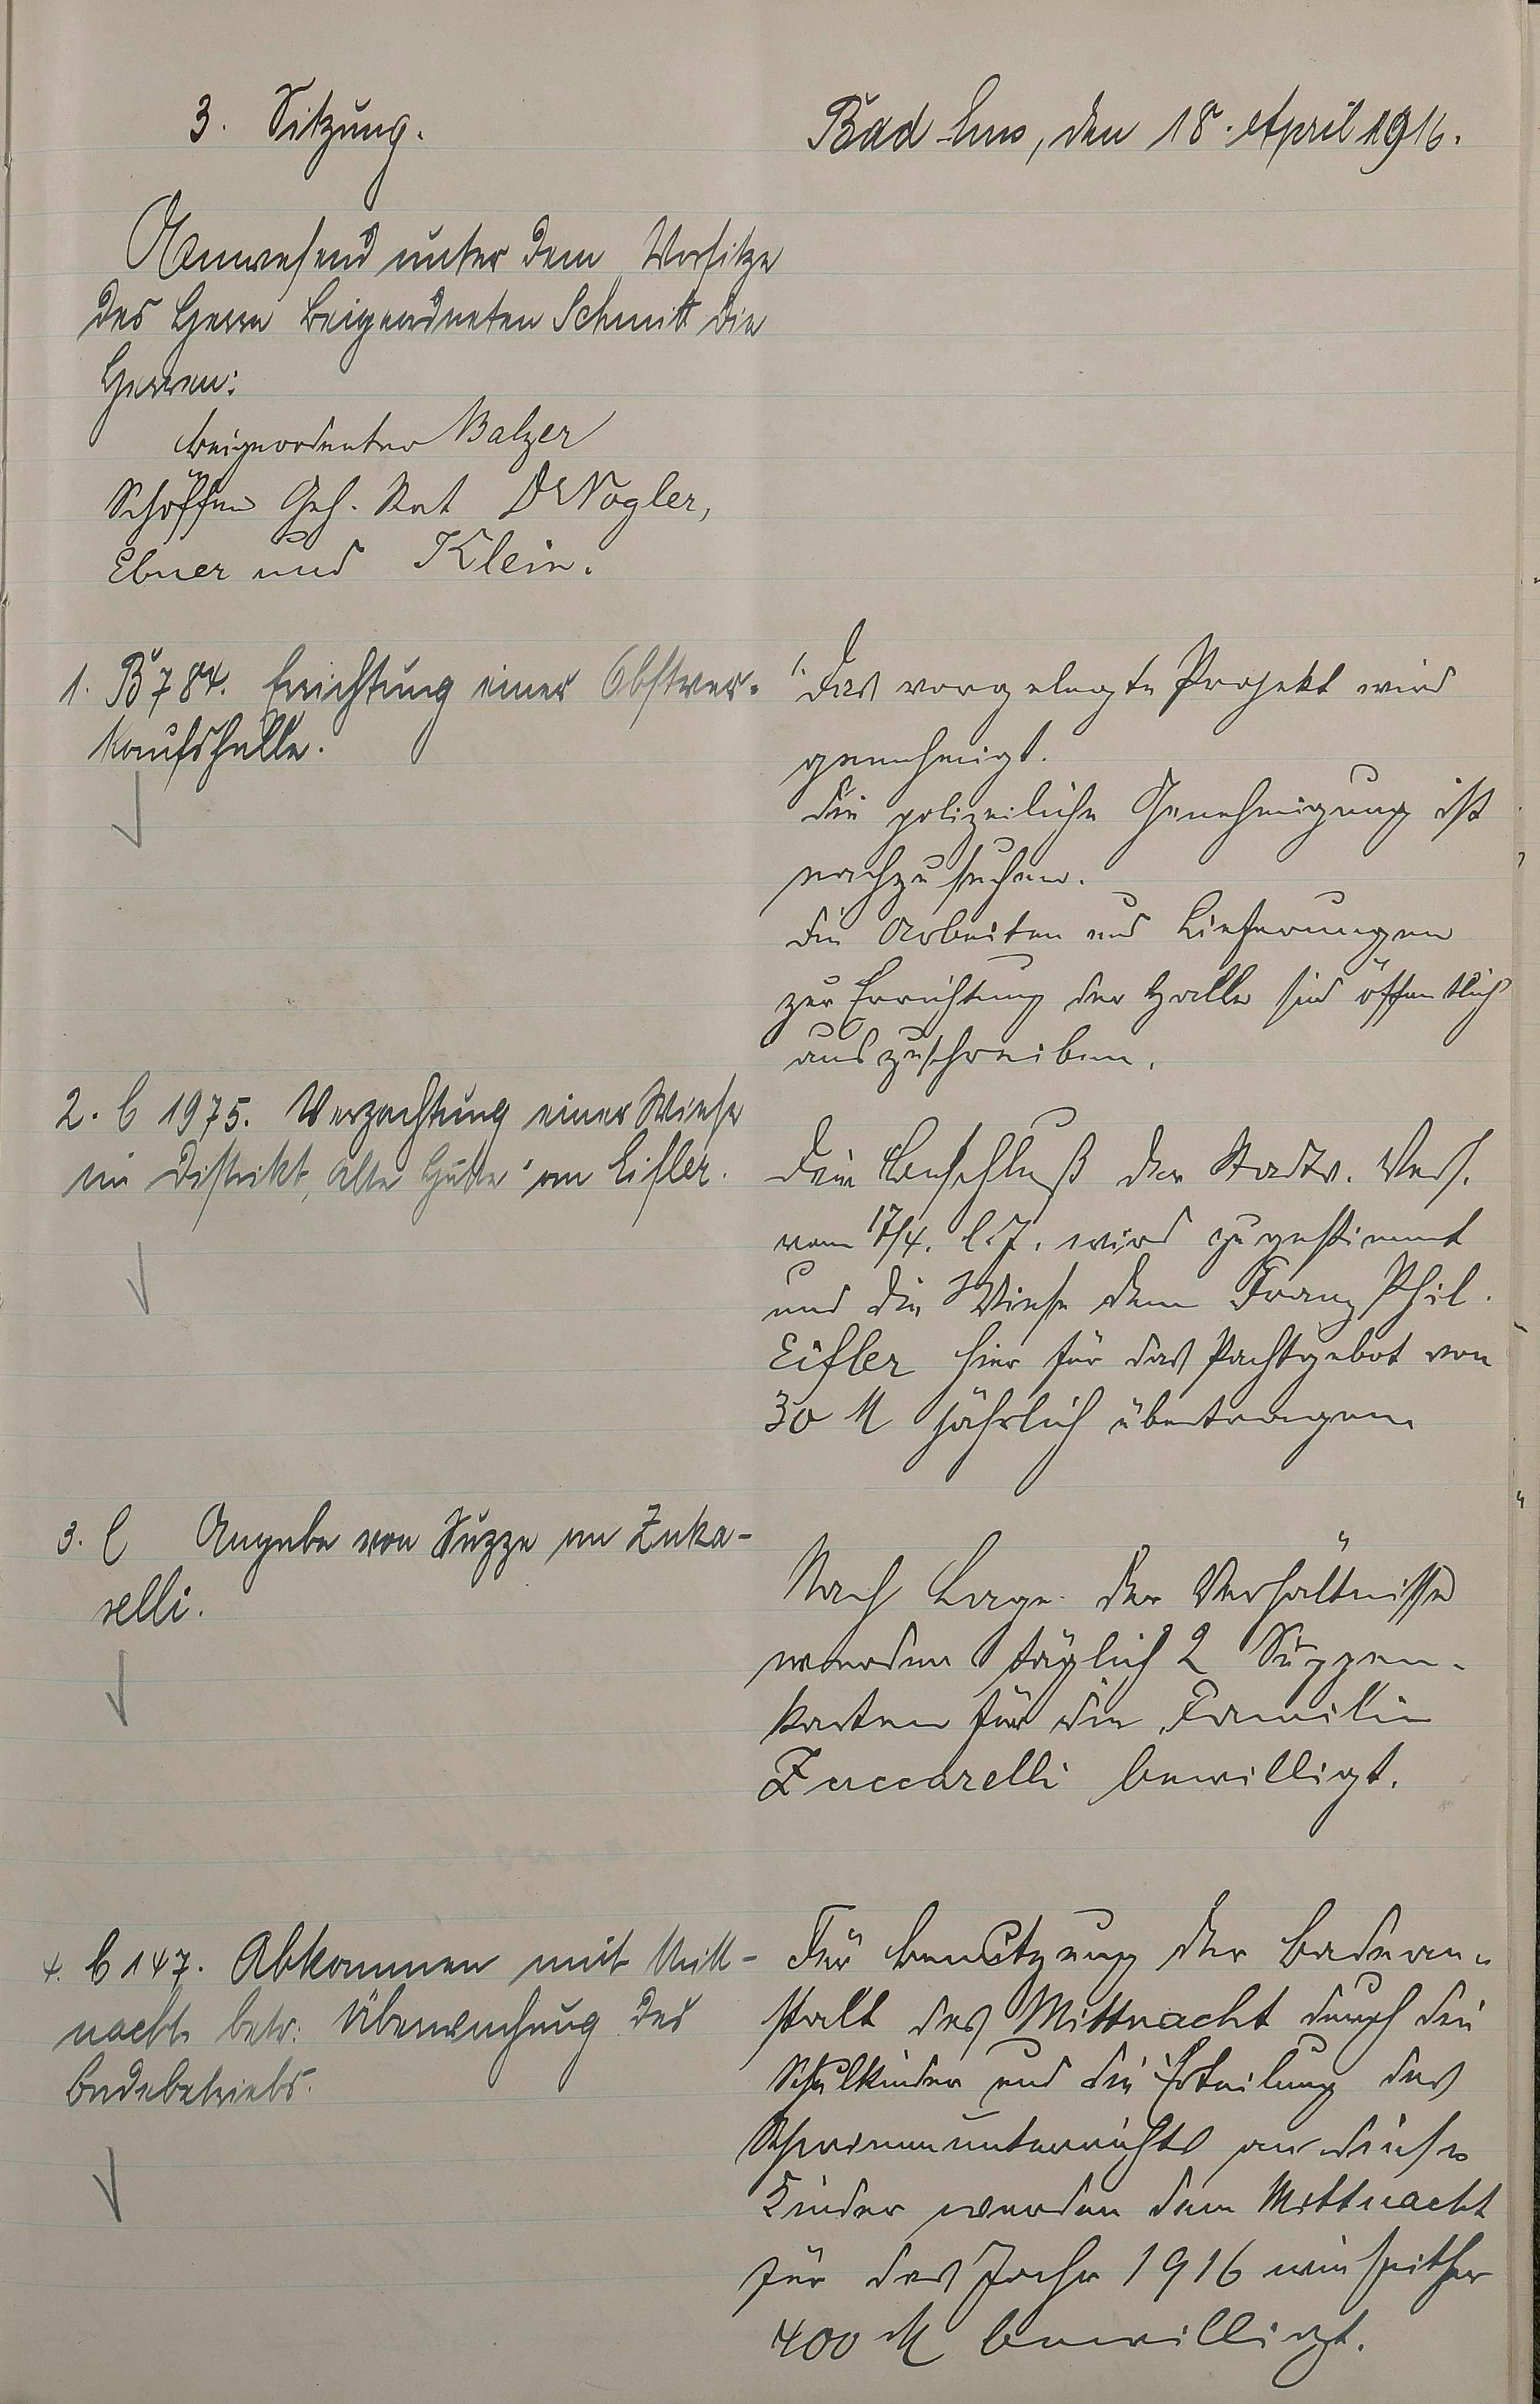 3. Sitzung.
Bad Ems, den 18. April 1916.
Anwesend unter dem Vorsitze
des Herrn Beigeordneten Schmitt die
Herren:
Beigeordneter Balzer
Schöffen Geh. Rat Dr Vogler,
Ebner und Klein.
1. B 784. Errichtung einer Obstver-
kaufshalle.
1. Das vorgelegte Projekt wird
genehmigt.
Die polizeiliche Genehmigung ist
nachzusuchen.
Die Arbeiten und Lieferungen
zur Errichtung der Halle sind öffentlich
auszuschreiben.
2. C 1975. Verpachtung einer Wiese
im Distrikt „Alte Hütte" an Eifler.
Dem Beschluß der Stadtv. Vers.
vom 17/4. l. J. wird zugestimmt
und die Wiese dem Franz Phil.
Eifler hier für das Pachtgebot von
30 M jährlich übertragen.
3. C Angabe von Suppe an Zuka-
relli.
Nach Lage der Verhältnisse
werden täglich 2 Suppen-
karten für die Familie
Zuccarelli bewilligt.
4. C 147. Abkommen mit Mitt-
nacht betr. Überwachung des
Badebetriebs.
Für Benutzung der Badean-
stalt des Mittnacht durch die
Schulkinder und die Erteilung des
Schwimmunterrichts an diese
Kinder werden dem Mittnacht
für das Jahr 1916 wie seither
400 M bewilligt.